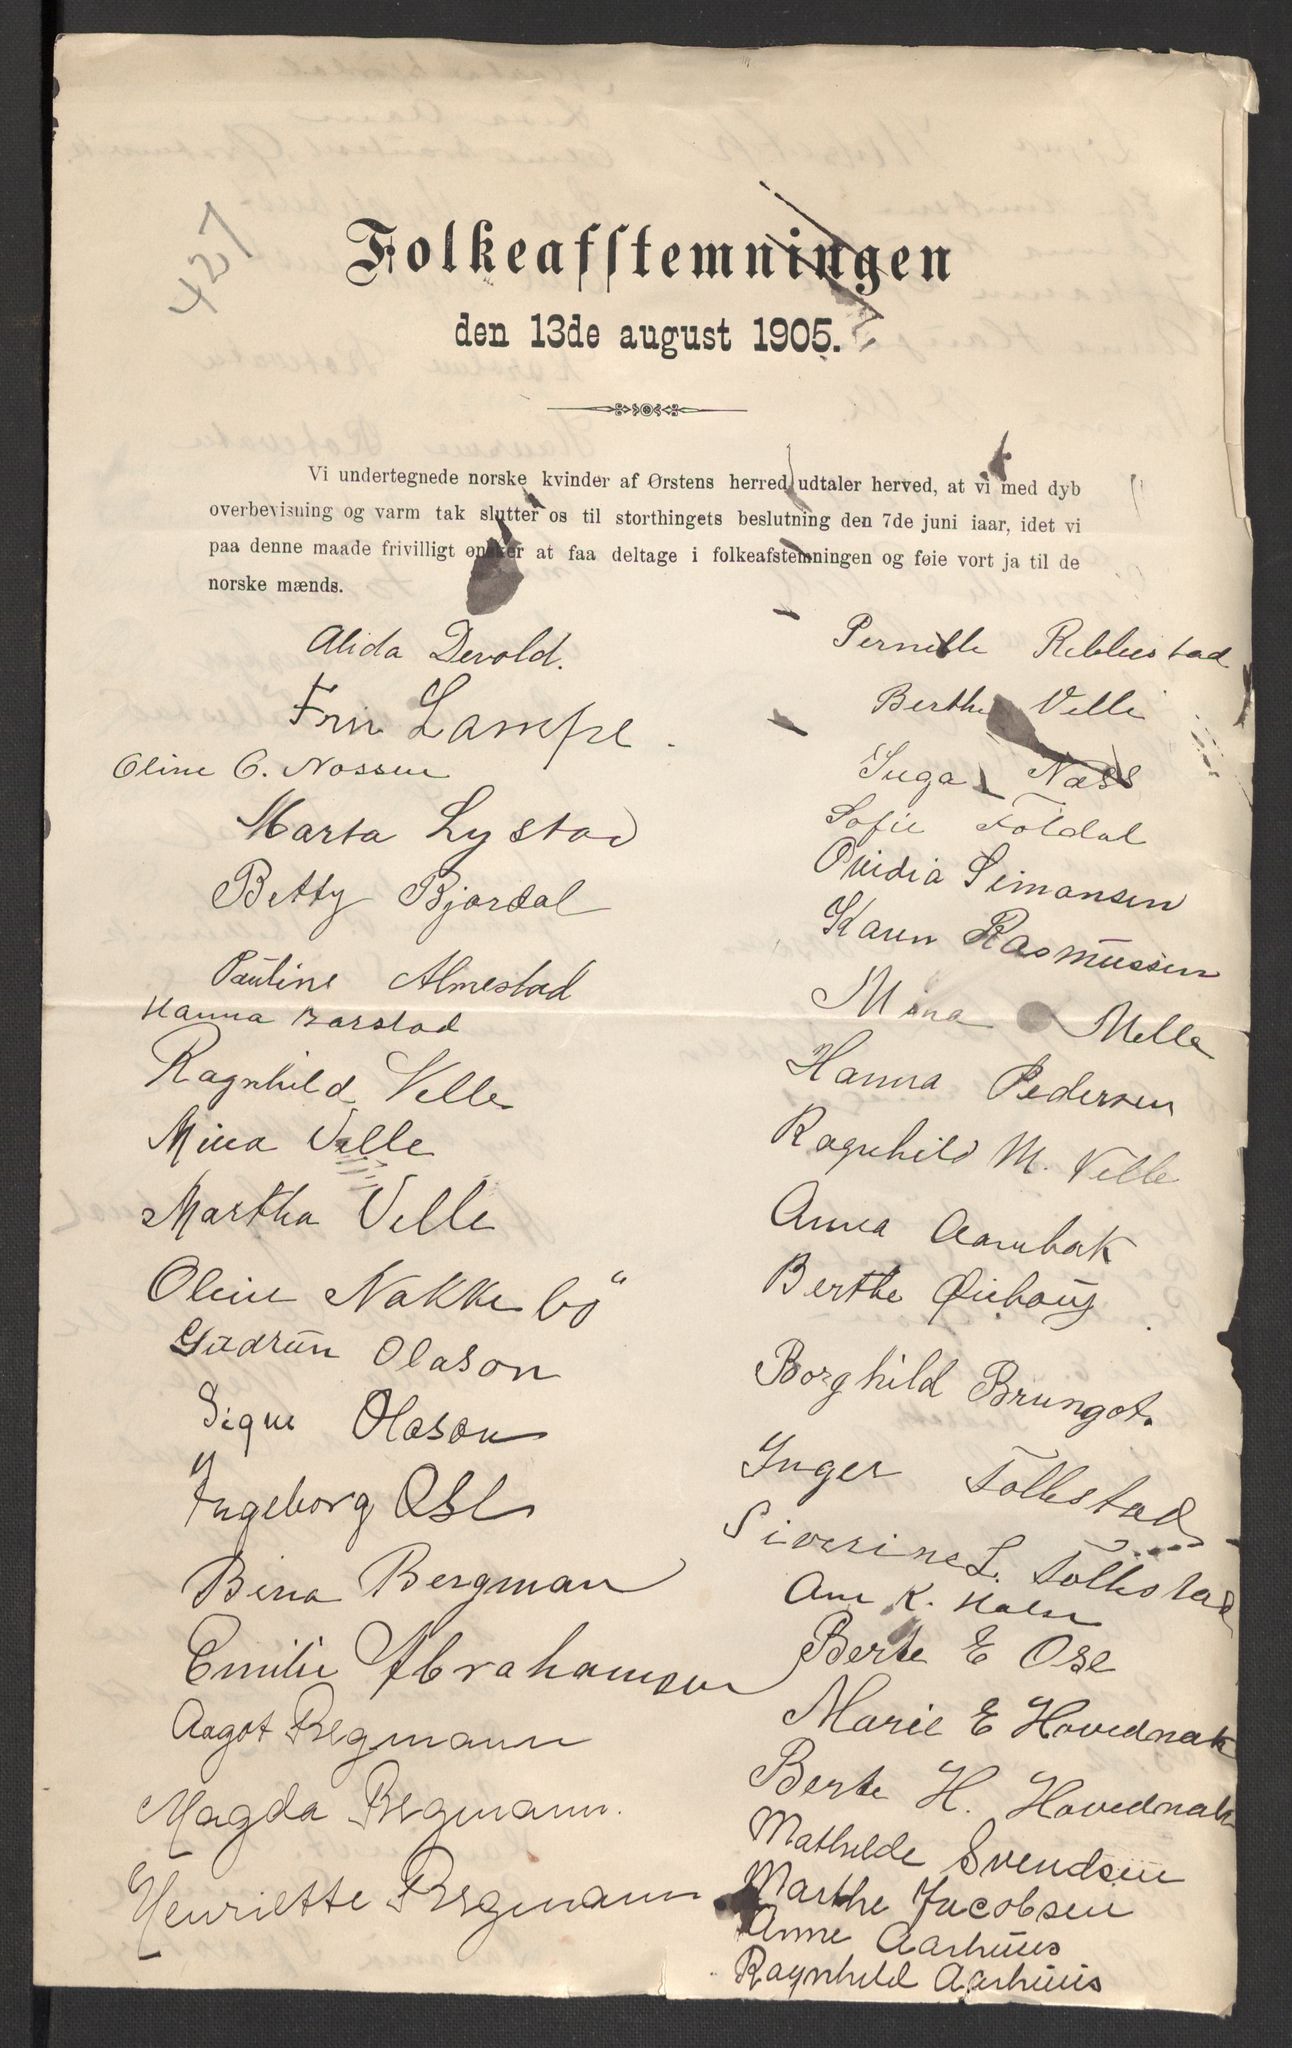 427
Folkeafstemningen
den 13de august 1905.
Vi undertegnede norske kvinder af Ørstens herred udtaler herved, at vi med dyb
overbevisning og varm tak slutter os til storthingets beslutning den 7de juni iaar, idet vi
paa denne maade frivilligt ønsker at faa deltage i folkeafstemningen og føie vort ja til de
norske mænds.
Alida Devold.
Fru Lampe.
Oline C. Nossen
Marta Lystad
Betty Bjordal
Pauline Almestad
Hanna Barstad
Ragnhild Velle
Mina Velle
Martha Velle
Oline Nakkebö
Gudrun Olason
Signe Olason
Ingeborg Ose
Bina Bergman
Emilie Abrahamsen
Aagot Bergmann
Magda Bergmann.
Henriette Bergmann
Pernille Ribbestad
Berthe Velle
Inga Næss
Sofie Foldal
Ovidia Simonsen
Karen Rasmussen
Mina Melle
Hanna Pedersen
Ragnhild M. Velle
Anna Aambak
Berthe Øiehaug.
Borghild Brungot.
Inger Folkestad
Siverine L. Folkestad
Ane K. Holm
Berte E Ose
Marie E Hovednak
Berte H. Hovednak
Mathilde Svendsen
Marthe Jacobsen
Anne Aarhuus
Ragnhild Aarhuus